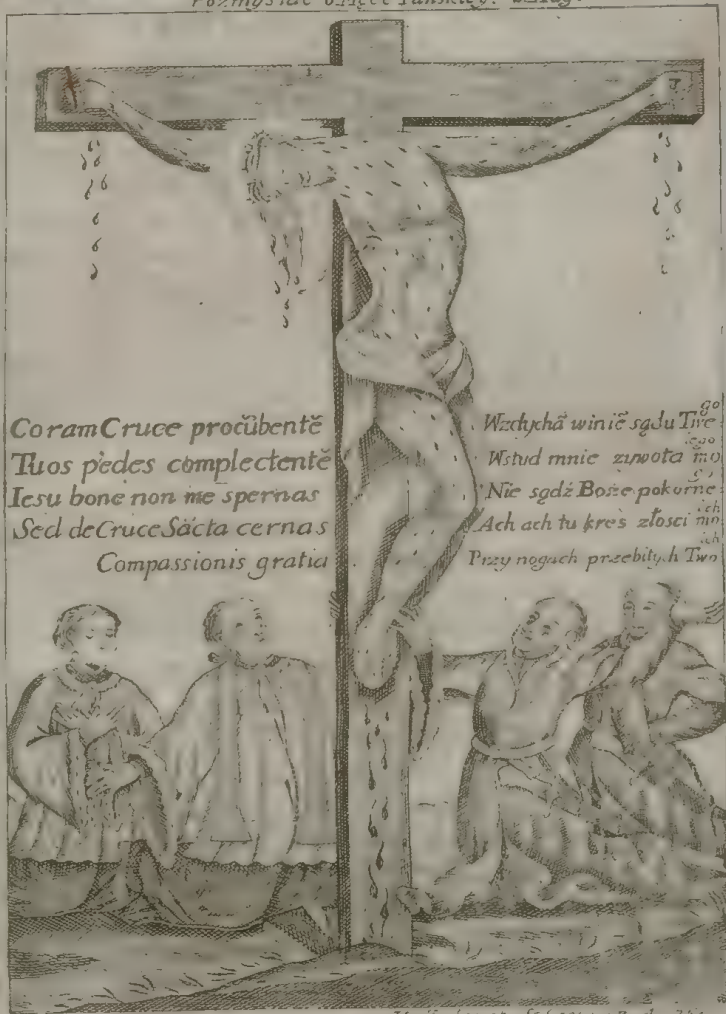 Coram Cruce procŭbentē
Tuos pedes complectentē
Iesu bone non me spernas
Sed de Cruce Sācta cernas
Compassionis gratia
Wzdychā winiē sądu Twego
Wstud mnie zywota mojego
Nie sądź Boże pokorne
Ach ach tu kres złosci moich
Przy nogach przebitych Twoich